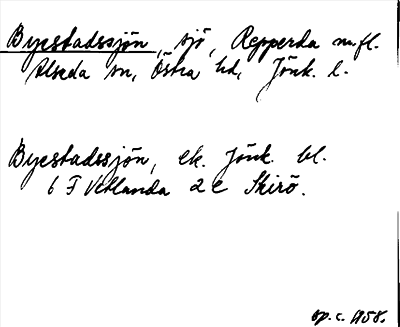 Byestadssjön, sjö, Repperda m.fl.
Alseda sn, Östra hd, Jönk. l.
Byestadssjön, ek. Jönk. bl.
6 F Vetlanda 2 e Skirö.
op. c. 1958.